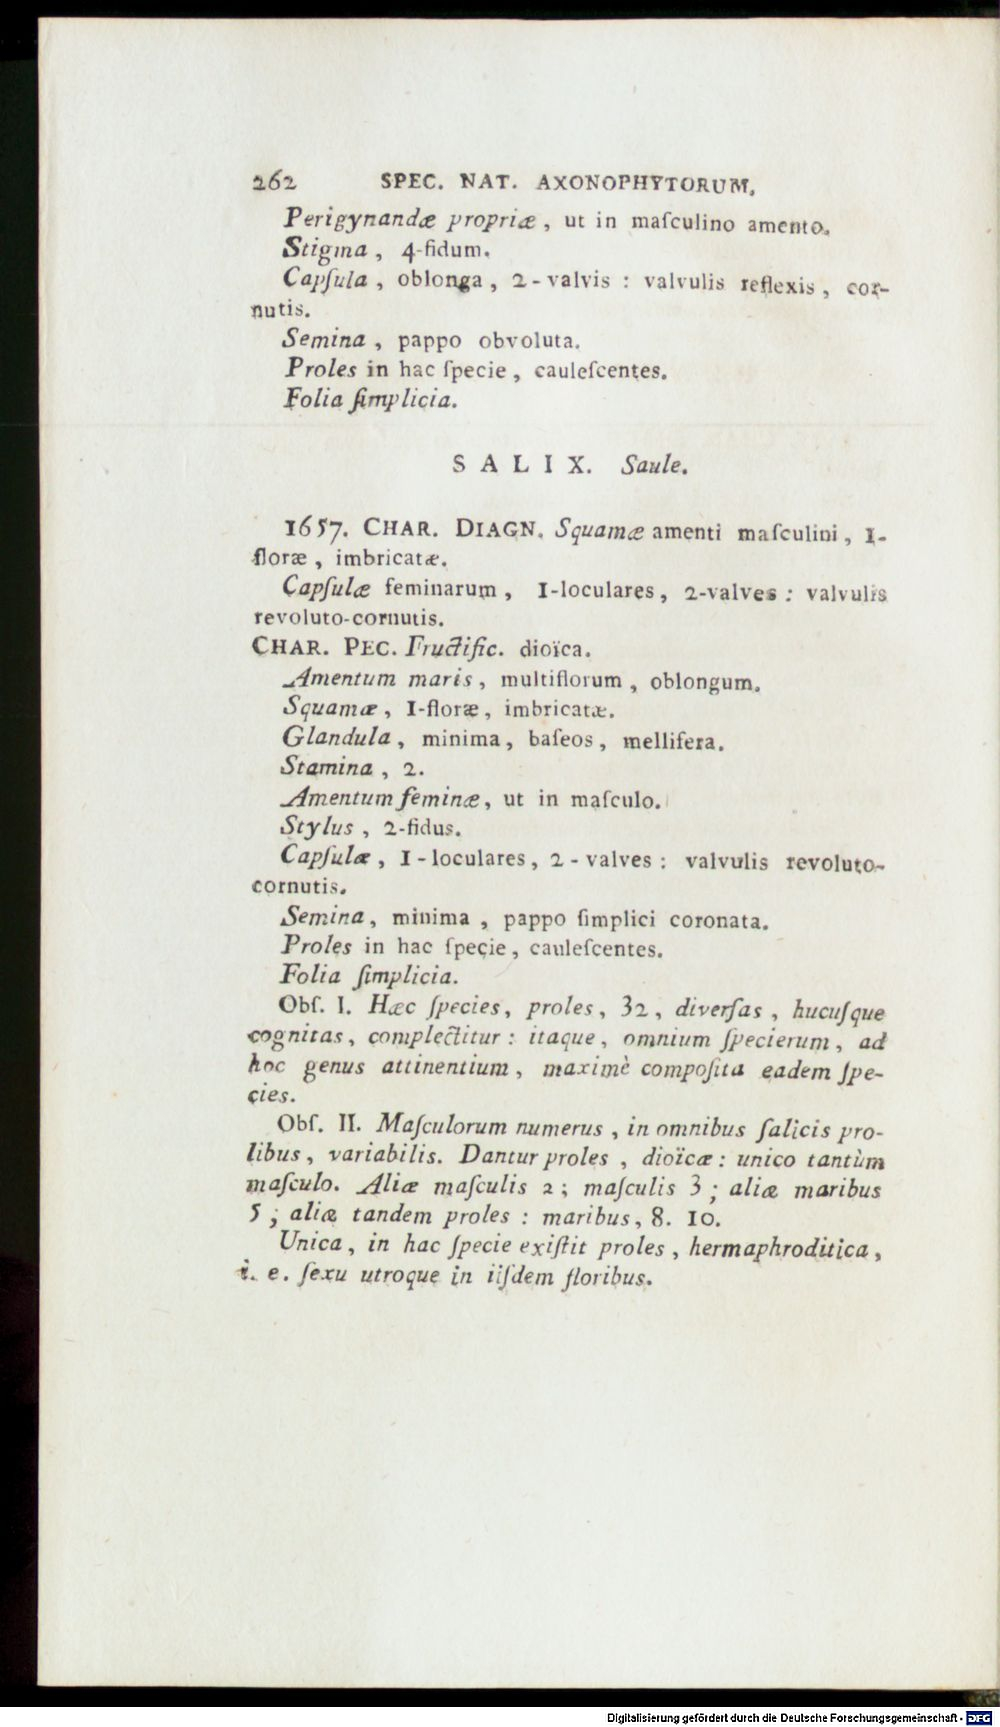 262 SPEC. NAT. AXONOPHYTORUM.
Perigynandæ propriæ, ut in maſculino amento.
Stigma, 4-fidum.
Capſula, oblonga, 2-valvis : valvulis reflexis, cor-
nutis.
Semina, pappo obvoluta.
Proles in hac ſpecie, cauleſcentes.
Folia ſimplicia.
SALIX. Saule.
1657. CHAR. DIAGN. Squamæ amenti maſculini, 1-
floræ, imbricatæ.
Capſulæ feminarum, 1-loculares, 2-valves : valvulis
revoluto-cornutis.
CHAR. PEC. Fructific. dioïca.
Amentum maris, multiflorum, oblongum.
Squamæ, 1-floræ, imbricatæ.
Glandula, minima, baſeos, mellifera.
Stamina, 2.
Amentum feminæ, ut in maſculo.
Stylus, 2-fidus.
Capſulæ, 1-loculares, 2-valves : valvulis revoluto-
cornutis.
Semina, minima, pappo ſimplici coronata.
Proles in hac ſpecie, cauleſcentes.
Folia ſimplicia.
Obſ. I. Hæc ſpecies, proles, 32, diverſas, hucuſque
cognitas, complectitur : itaque, omnium ſpecierum, ad
hoc genus attinentium, maximè compoſita eadem ſpe-
cies.
Obſ. II. Maſculorum numerus, in omnibus ſalicis pro-
libus, variabilis. Dantur proles, dioïcæ : unico tantùm
maſculo. Aliæ maſculis 2; maſculis 3; aliæ maribus
5; aliæ tandem proles : maribus, 8. 10.
Unica, in hac ſpecie exiſtit proles, hermaphroditica,
i. e. ſexu utroque in iiſdem floribus.
Digitalisierung gefördert durch die Deutsche Forschungsgemeinschaft - DFG